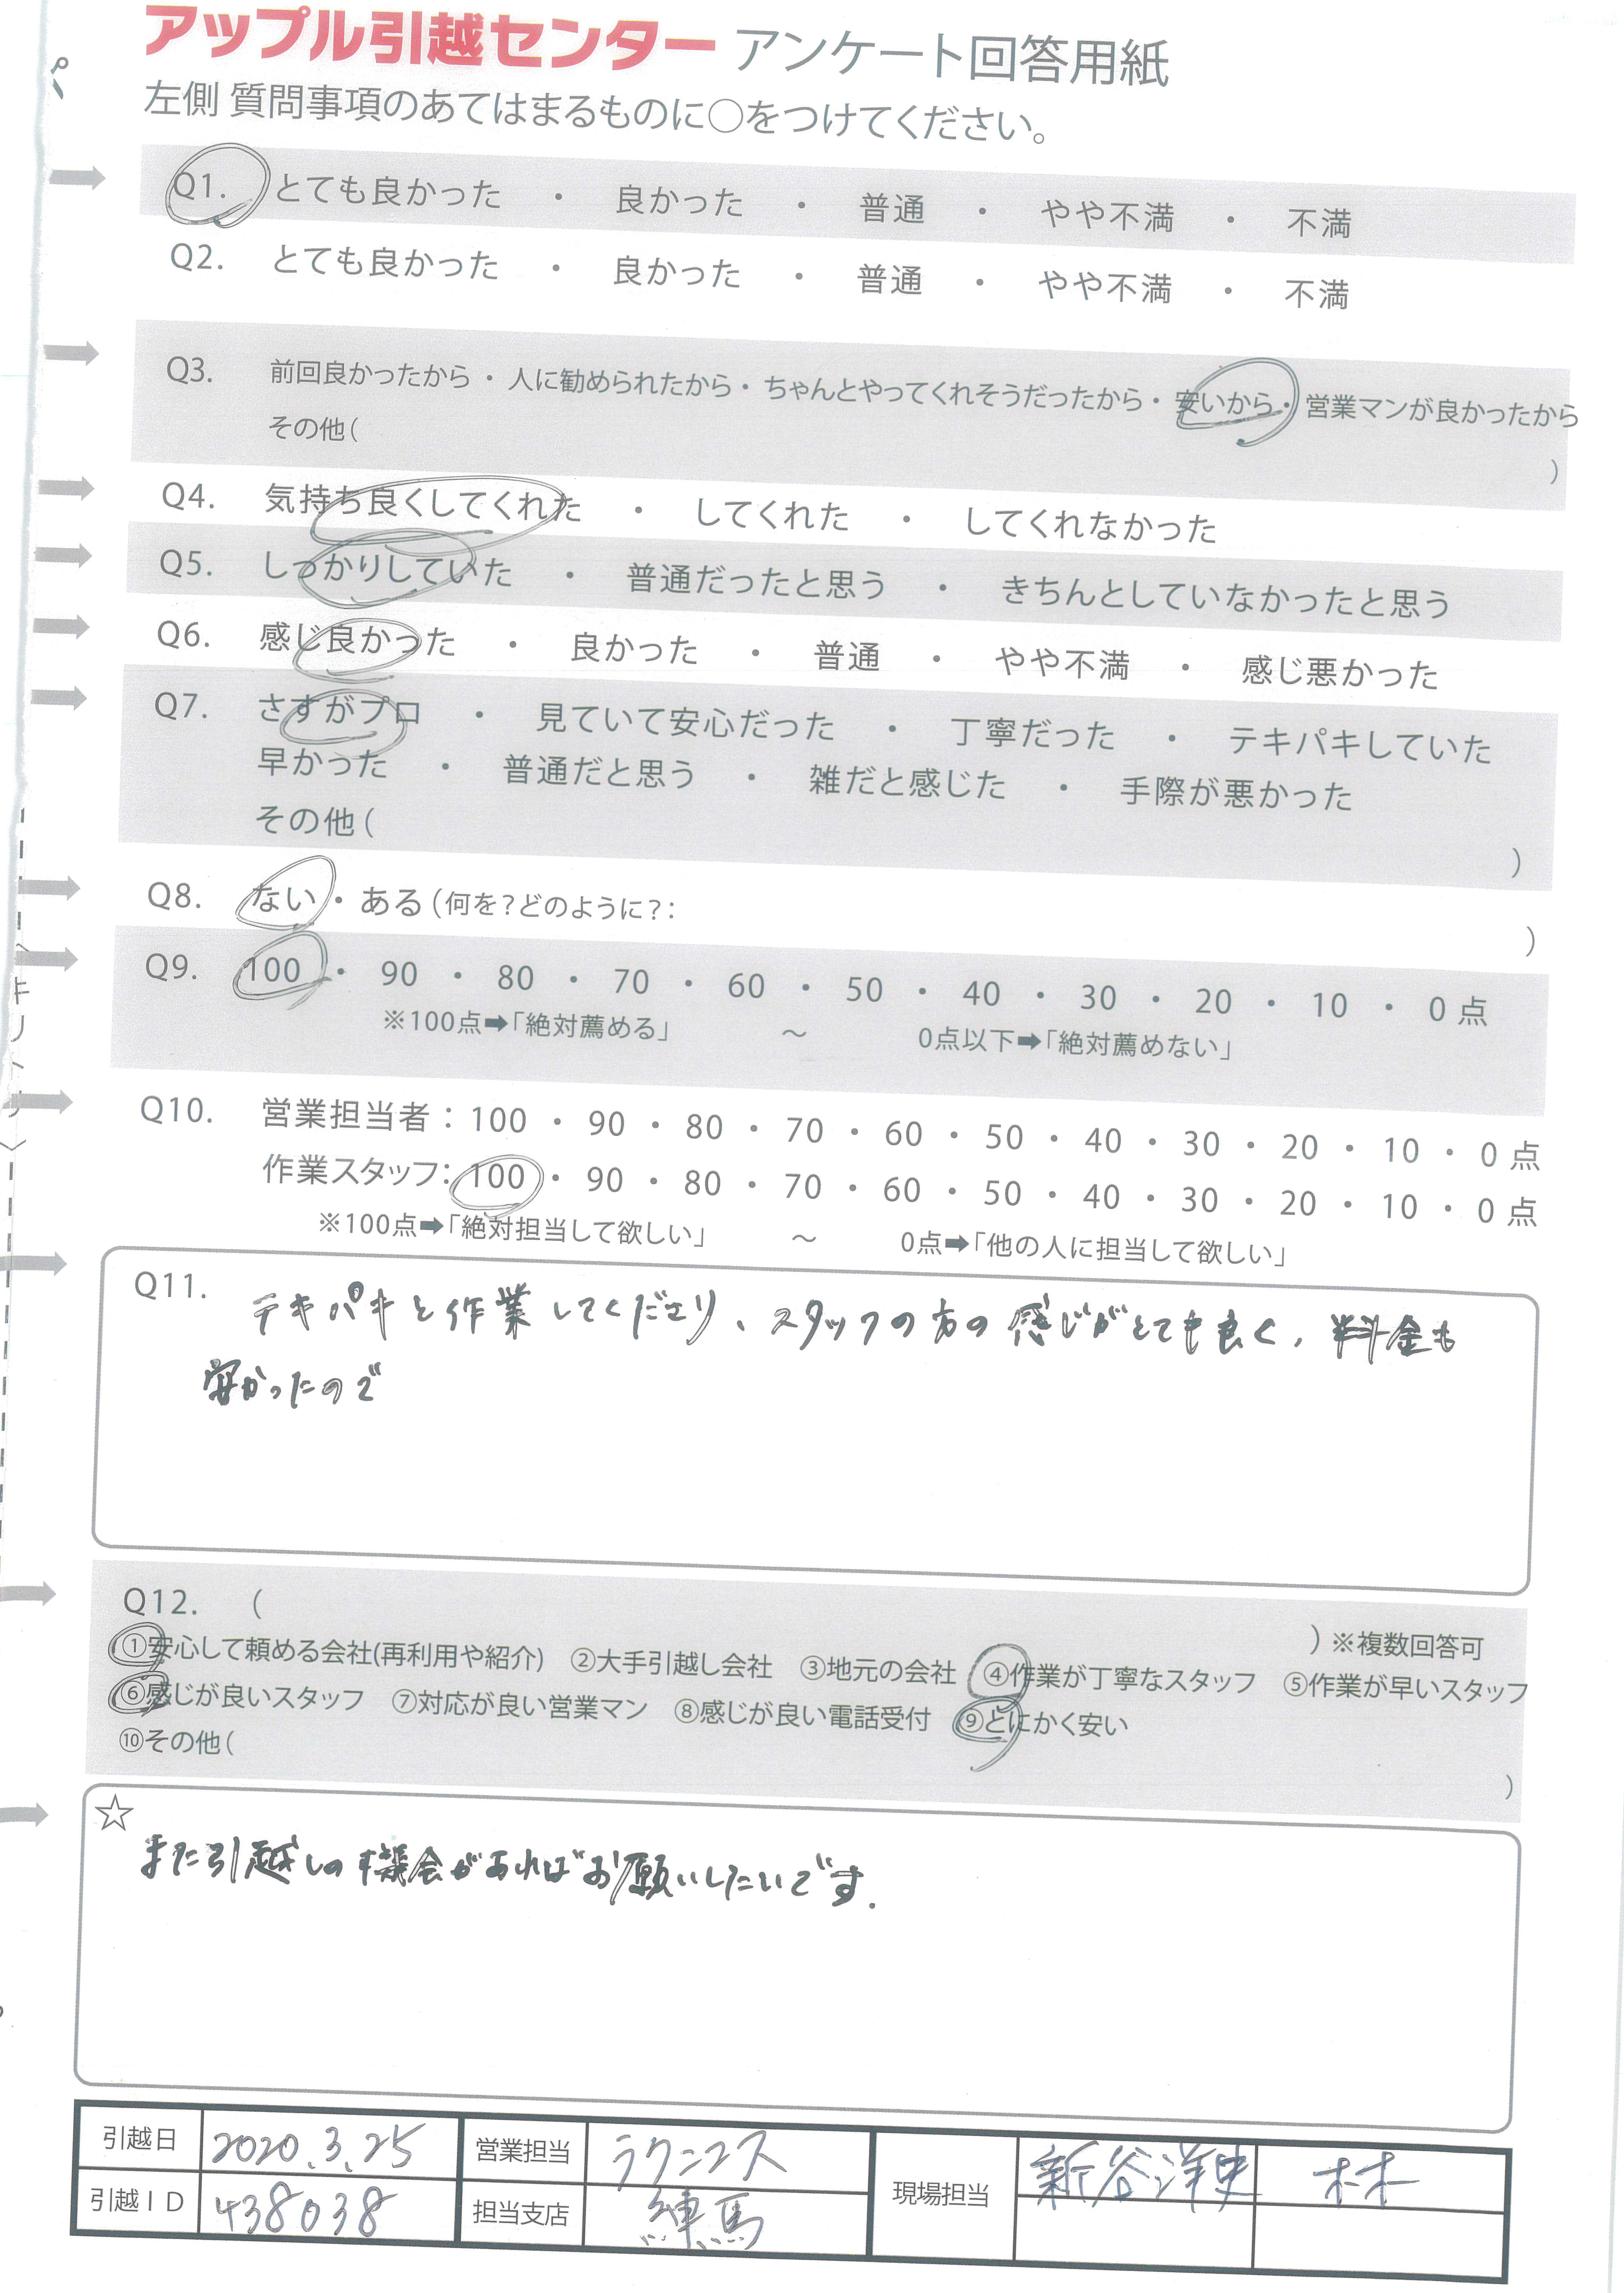 アップル引越センター アンケート回答用紙
左側 質問事項のあてはまるものに○をつけてください。
Q1. とても良かった ・ 良かった ・ 普通 ・ やや不満 ・ 不満
Q2. とても良かった ・ 良かった ・ 普通 ・ やや不満 ・ 不満
Q3. 前回良かったから ・ 人に勧められたから ・ ちゃんとやってくれそうだったから ・ 安いから ・ 営業マンが良かったから
その他( )
Q4. 気持ち良くしてくれた ・ してくれた ・ してくれなかった
Q5. しっかりしていた ・ 普通だったと思う ・ きちんとしていなかったと思う
Q6. 感じ良かった ・ 良かった ・ 普通 ・ やや不満 ・ 感じ悪かった
Q7. さすがプロ ・ 見ていて安心だった ・ 丁寧だった ・ テキパキしていた
早かった ・ 普通だと思う ・ 雑だと感じた ・ 手際が悪かった
その他( )
Q8. ない ・ ある (何を?どのように?: )
Q9. 100 ・ 90 ・ 80 ・ 70 ・ 60 ・ 50 ・ 40 ・ 30 ・ 20 ・ 10 ・ 0 点
※100点➡「絶対薦める」 ～ 0点以下➡「絶対薦めない」
Q10. 営業担当者：100 ・ 90 ・ 80 ・ 70 ・ 60 ・ 50 ・ 40 ・ 30 ・ 20 ・ 10 ・ 0 点
作業スタッフ：100 ・ 90 ・ 80 ・ 70 ・ 60 ・ 50 ・ 40 ・ 30 ・ 20 ・ 10 ・ 0 点
※100点➡「絶対担当して欲しい」 ～ 0点➡「他の人に担当して欲しい」
Q11. テキパキと作業してくださり、スタッフの方の感じがとても良く、料金も
安かったので
Q12. ( ) ※複数回答可
①安心して頼める会社(再利用や紹介) ②大手引越し会社 ③地元の会社 ④作業が丁寧なスタッフ ⑤作業が早いスタッフ
⑥感じが良いスタッフ ⑦対応が良い営業マン ⑧感じが良い電話受付 ⑨とにかく安い
⑩その他( )
☆
また引越しの機会があればお願いしたいです.
引越日 2020.3.25 営業担当 ラクニコス 現場担当 新谷洋史 林
引越ID 438038 担当支店 練馬